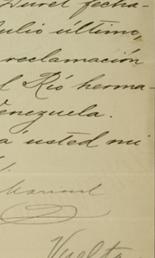 Duvel fecha-
Julio último,
reclamación
l Rió herma-
Venezuela.
a usted mi
Vuelta